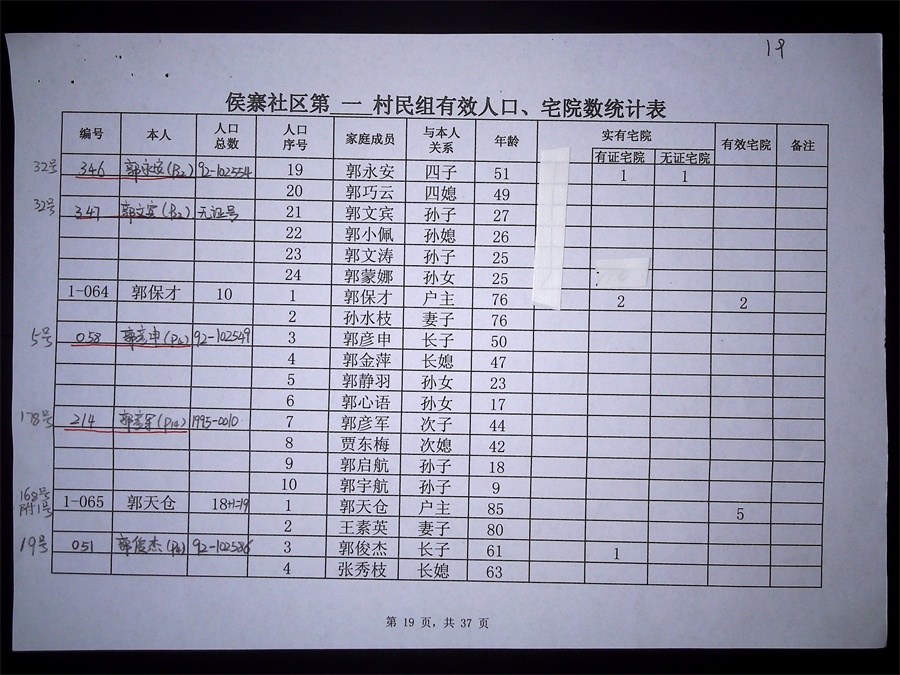 19
侯寨社区第 一 村民组有效人口、宅院数统计表
编号 本人 人口总数 人口序号 家庭成员 与本人关系 年龄 实有宅院 有效宅院 备注
有证宅院 无证宅院
32号 346 郭永安(P2) 92-102554 19 郭永安 四子 51 1 1
20 郭巧云 四媳 49
32号 347 郭文宾(P2) 无证号 21 郭文宾 孙子 27
22 郭小佩 孙媳 26
23 郭文涛 孙子 25
24 郭蒙娜 孙女 25
1-064 郭保才 10 1 郭保才 户主 76 2 2
2 孙水枝 妻子 76
5号 058 郭彦申(P4) 92-102549 3 郭彦申 长子 50
4 郭金萍 长媳 47
5 郭静羽 孙女 23
6 郭心语 孙女 17
178号 214 郭彦军(P14) 1995-0010 7 郭彦军 次子 44
8 贾东梅 次媳 42
9 郭启航 孙子 18
10 郭宇航 孙子 9
168号附1号 1-065 郭天仓 18+1=19 1 郭天仓 户主 85 5
2 王素英 妻子 80
19号 051 郭俊杰(P4) 92-102586 3 郭俊杰 长子 61 1
4 张秀枝 长媳 63
第 19 页，共 37 页